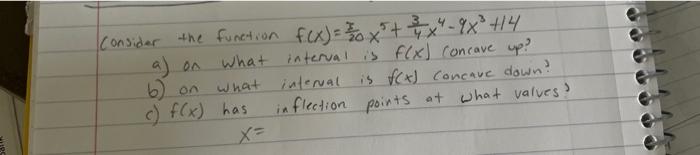 Consider the function f(x) = 3/20 x^5 + 3/4 x^4 - 9x^3 + 14
a) on what interval is f(x) concave up?
b) on what interval is f(x) concave down?
c) f(x) has inflection points at what values?
x=